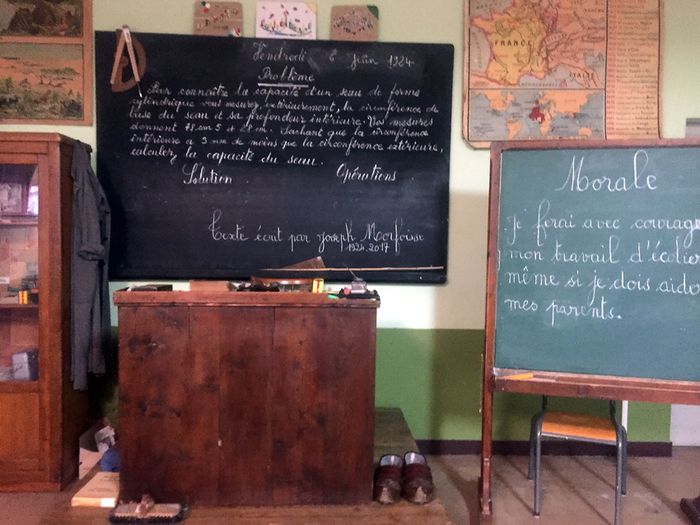 Vendredi 6 Juin 1924
Problème
Pour connaître la capacité d'un seau de forme
cylindrique vous mesurez, extérieurement, la circonférence de
base du seau et sa profondeur intérieure. Vos mesures
donnent 78 cm 5 et cm. Sachant que la circonférence
intérieure a 3 mm de moins que la circonférence extérieure,
calculez la capacité du seau.
Solution Opérations
Texte écrit par Joseph Morfoisse
1924.2017
FRANCE
ITALIE
Morale
Je ferai avec courage
mon travail d'écolier
même si je dois aider
mes parents.